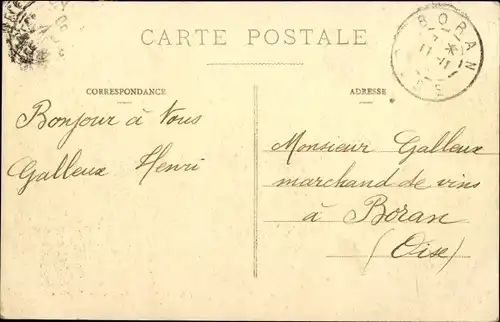 CARTE POSTALE
CORRESPONDANCE
ADRESSE
BORAN
Bonjour à Vous
Galleux Henri
Monsieur Galleux
marchand de vins
à Boran
(Oise)